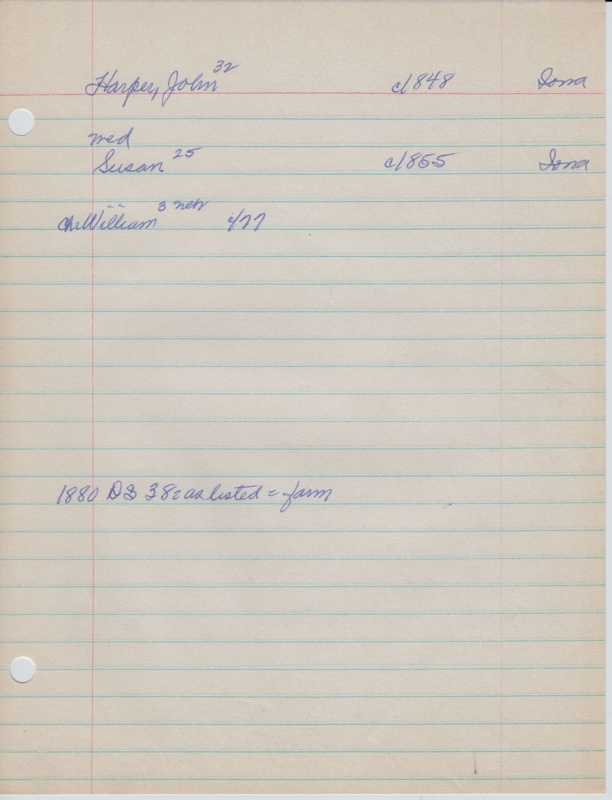 Harper, John 32 c1848 Iowa
med
Susan 25 c1855 Iowa
ch: William 3 neb c/77
1880 D3 38: as listed = farm